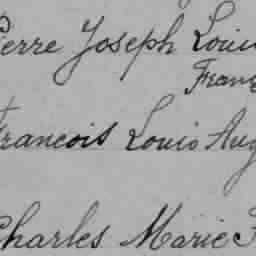 Pierre Joseph Louis
Franç
François Louis Aug
Charles Marie F